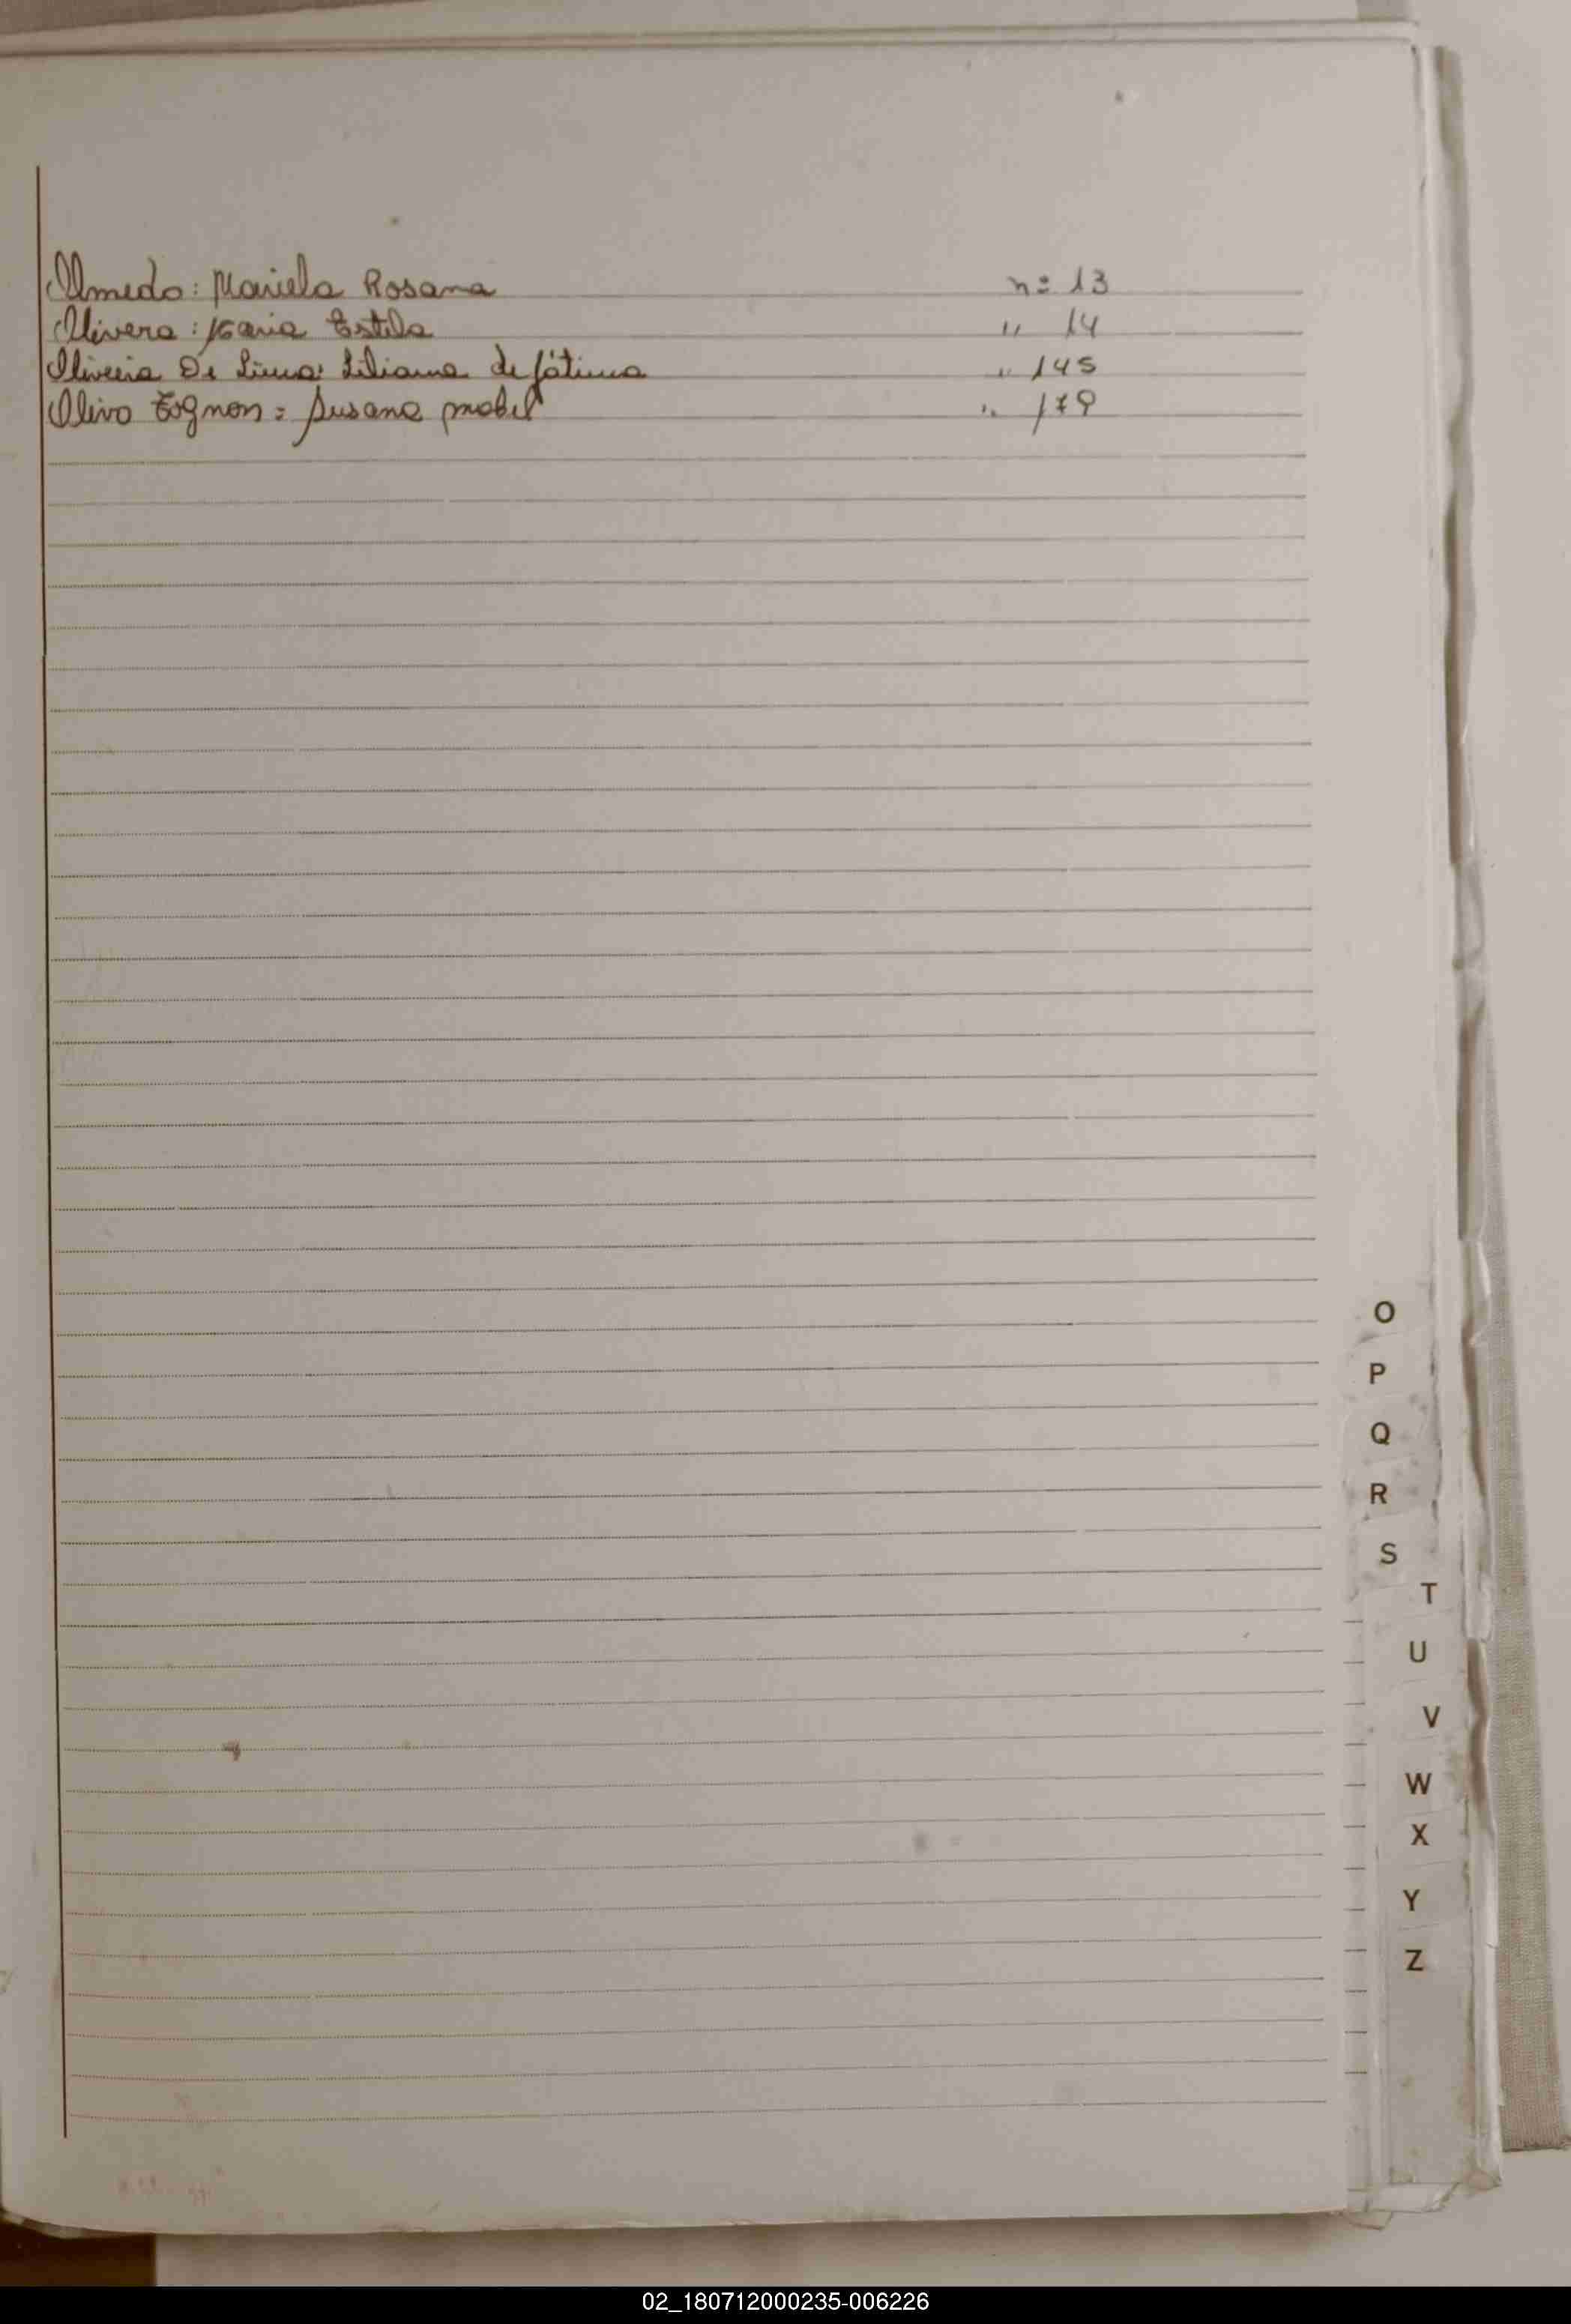 Olmedo: Mariela Rosana nº 13
Olivera: Maria Estela " 14
Oliveira De Lima: Liliana de fátima " 145
Olivo Tognon: Susana mabel " 179
O
P
Q
R
S
T
U
V
W
X
Y
Z
02_180712000235-006226